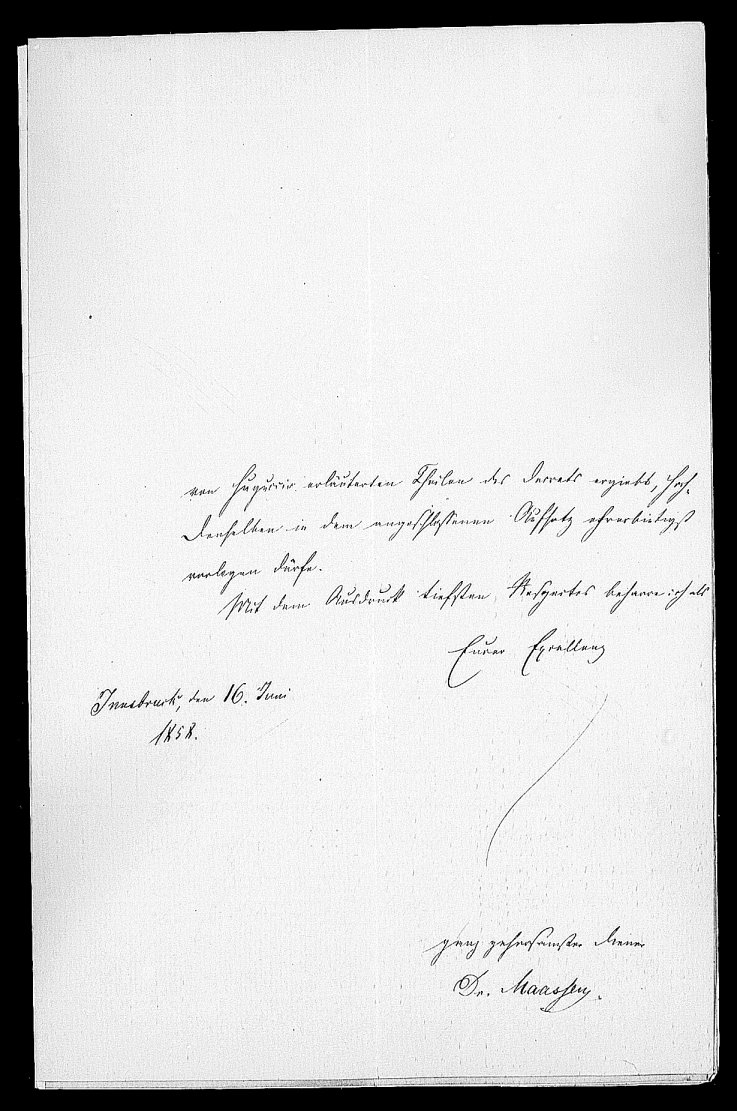 von Huguccio erläuterten Theilen des Decrets ergiebt, Hoch-
Denselben in dem angeschlossenen Aufsatz ehrerbietigst
vorlegen dürfe.
Mit dem Ausdruck tiefsten Respectes beharre ich als
Eurer Excellenz
Innsbruck, den 16. Juni
1858.
ganz gehorsamster Diener
Dr. Maassen.